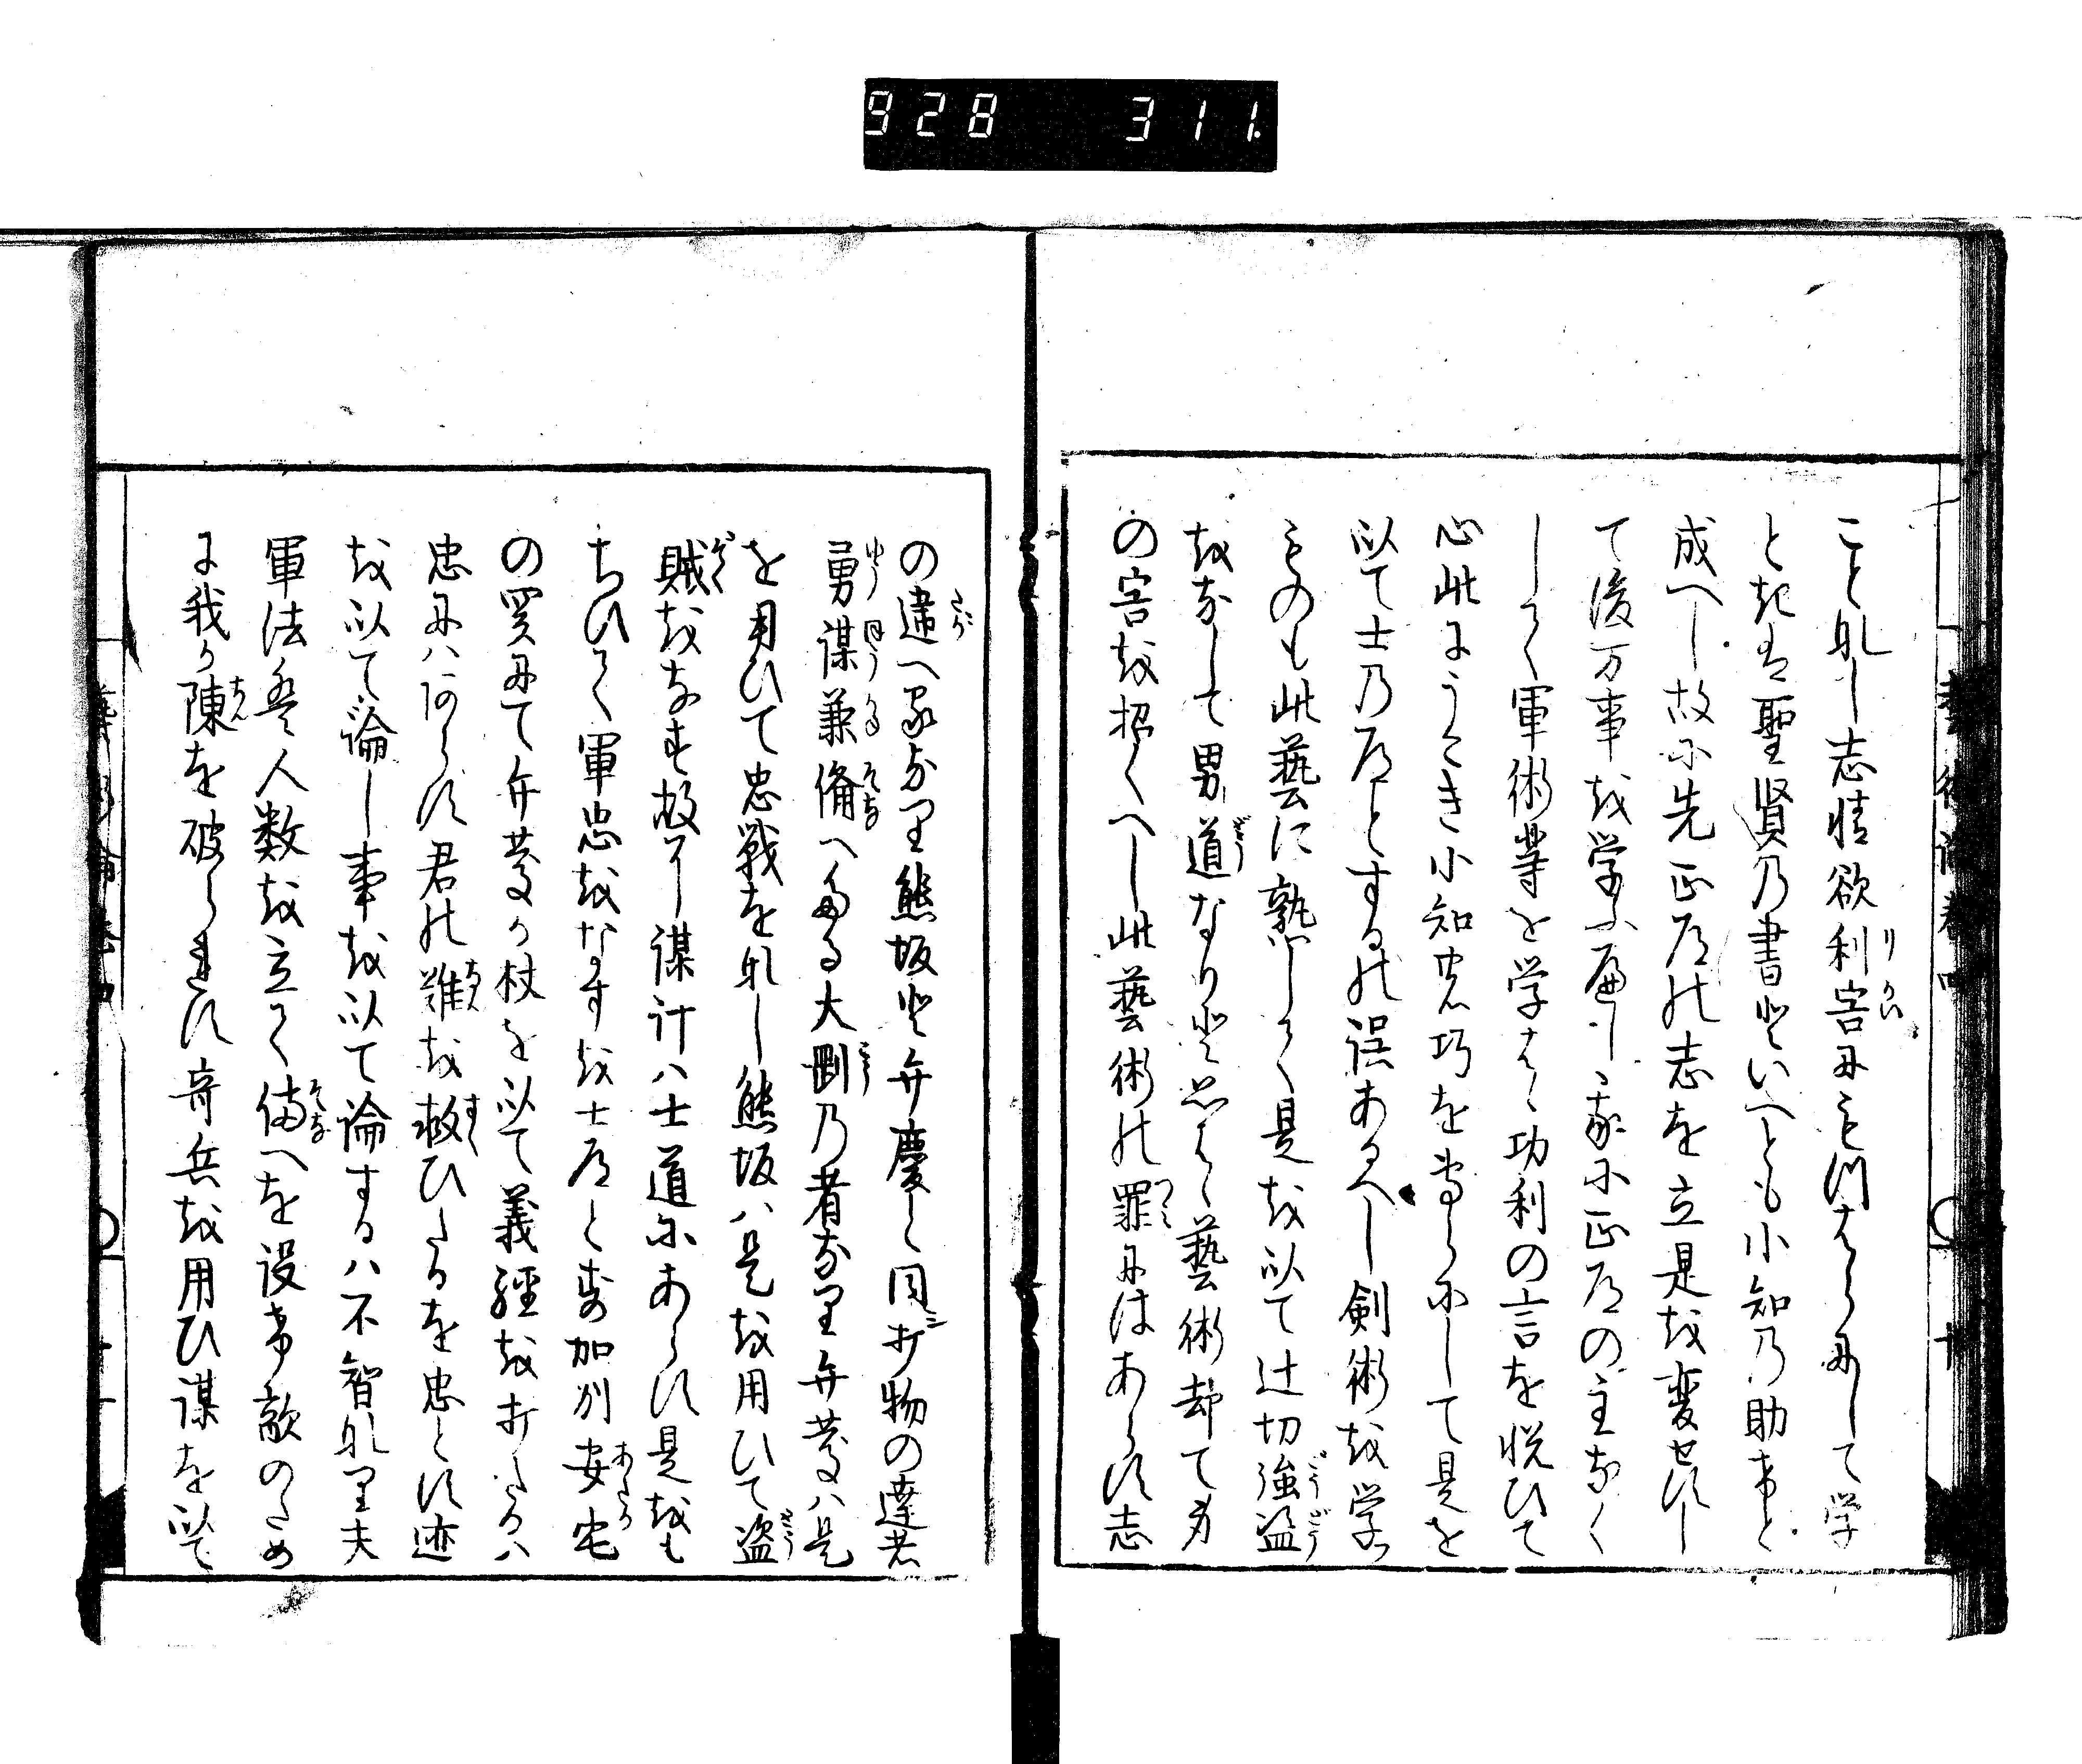 928 311
こと有し志情欲利害にもつはらにして学
ときは聖賢乃書といへとも小知乃助けと
成へし故に先正道の志を立是を変せすし
て後万事を学ふへし我に正道の主なく
して軍術等を学はゝ功利の言を悦ひて
心此にうこき小知の巧を専らにして是を
以て士乃道とするの誤あるへし剣術を学ふ
ものも此藝に熟して是を以て辻切強盗
をなして男道なりと思はゝ藝術却て身
の害を招くへし此藝術の罪にはあらす志
の違へるなり熊坂と弁慶と同シ打物の達者
勇謀兼備へたる大剛乃者なり弁慶ハ是
を用ひて忠戦をなし熊坂ハ是を用ひて盗
賊をなす故に謀計ハ士道にあらす是をも
ちひて軍忠をなすを士道とす加州安宅
の関にて弁慶か杖を以て義経を打たるハ
忠にハあらす君の難を救ひたるを忠とす迹
を以て論し事を以て論するハ不智なり夫
軍法ハ人数を立て備へを設け敵のため
に我か陳を破られす奇兵を用ひ謀を以て